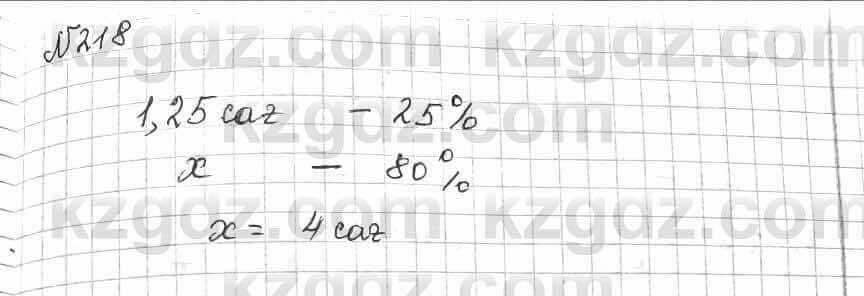 №218
1,25 саг - 25%
x - 80%
x = 4 саг
kzgdz.com kzgdz.com
kzgdz.com
kzgdz.com kzgdz.com
kzgdz.com